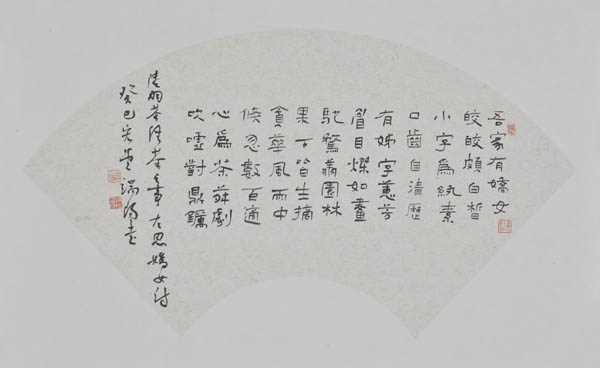 吾家有嬌女
皎皎頗白皙
小字為紈素
口齒自清歷
有姊字蕙芳
眉目燦如畫
馳騖翔園林
果下皆生摘
貪華風雨中
倏忽數百適
心為茶荈劇
吹噓對鼎䥶
陸羽茶經茶事左思嬌女詩
癸巳 瑞